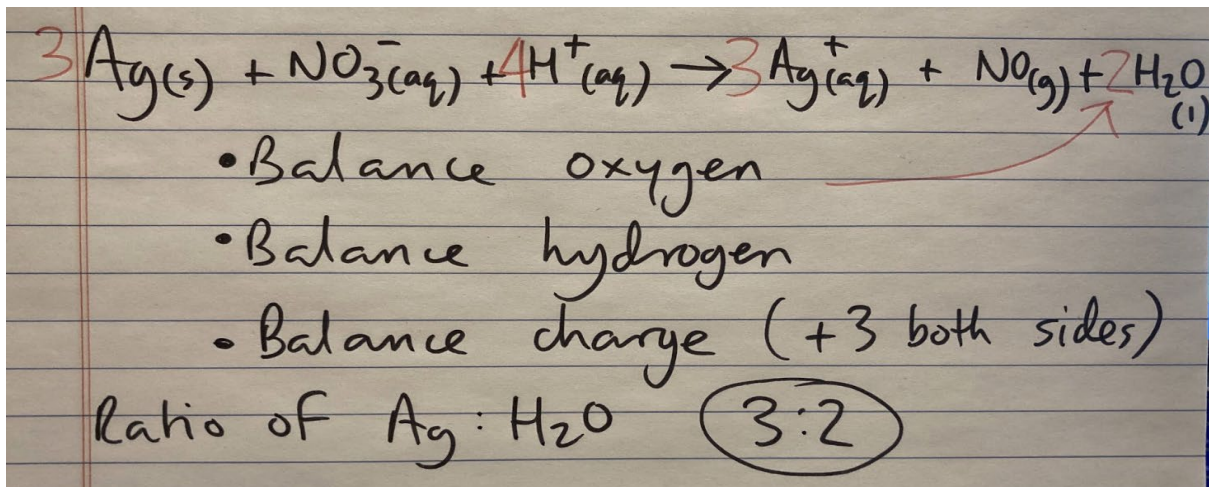 3Ag(s) + NO₃⁻(aq) + 4H⁺(aq) → 3Ag⁺(aq) + NO(g) + 2H₂O(l)
• Balance oxygen
• Balance hydrogen
• Balance charge (+3 both sides)
Ratio of Ag : H₂O 3:2